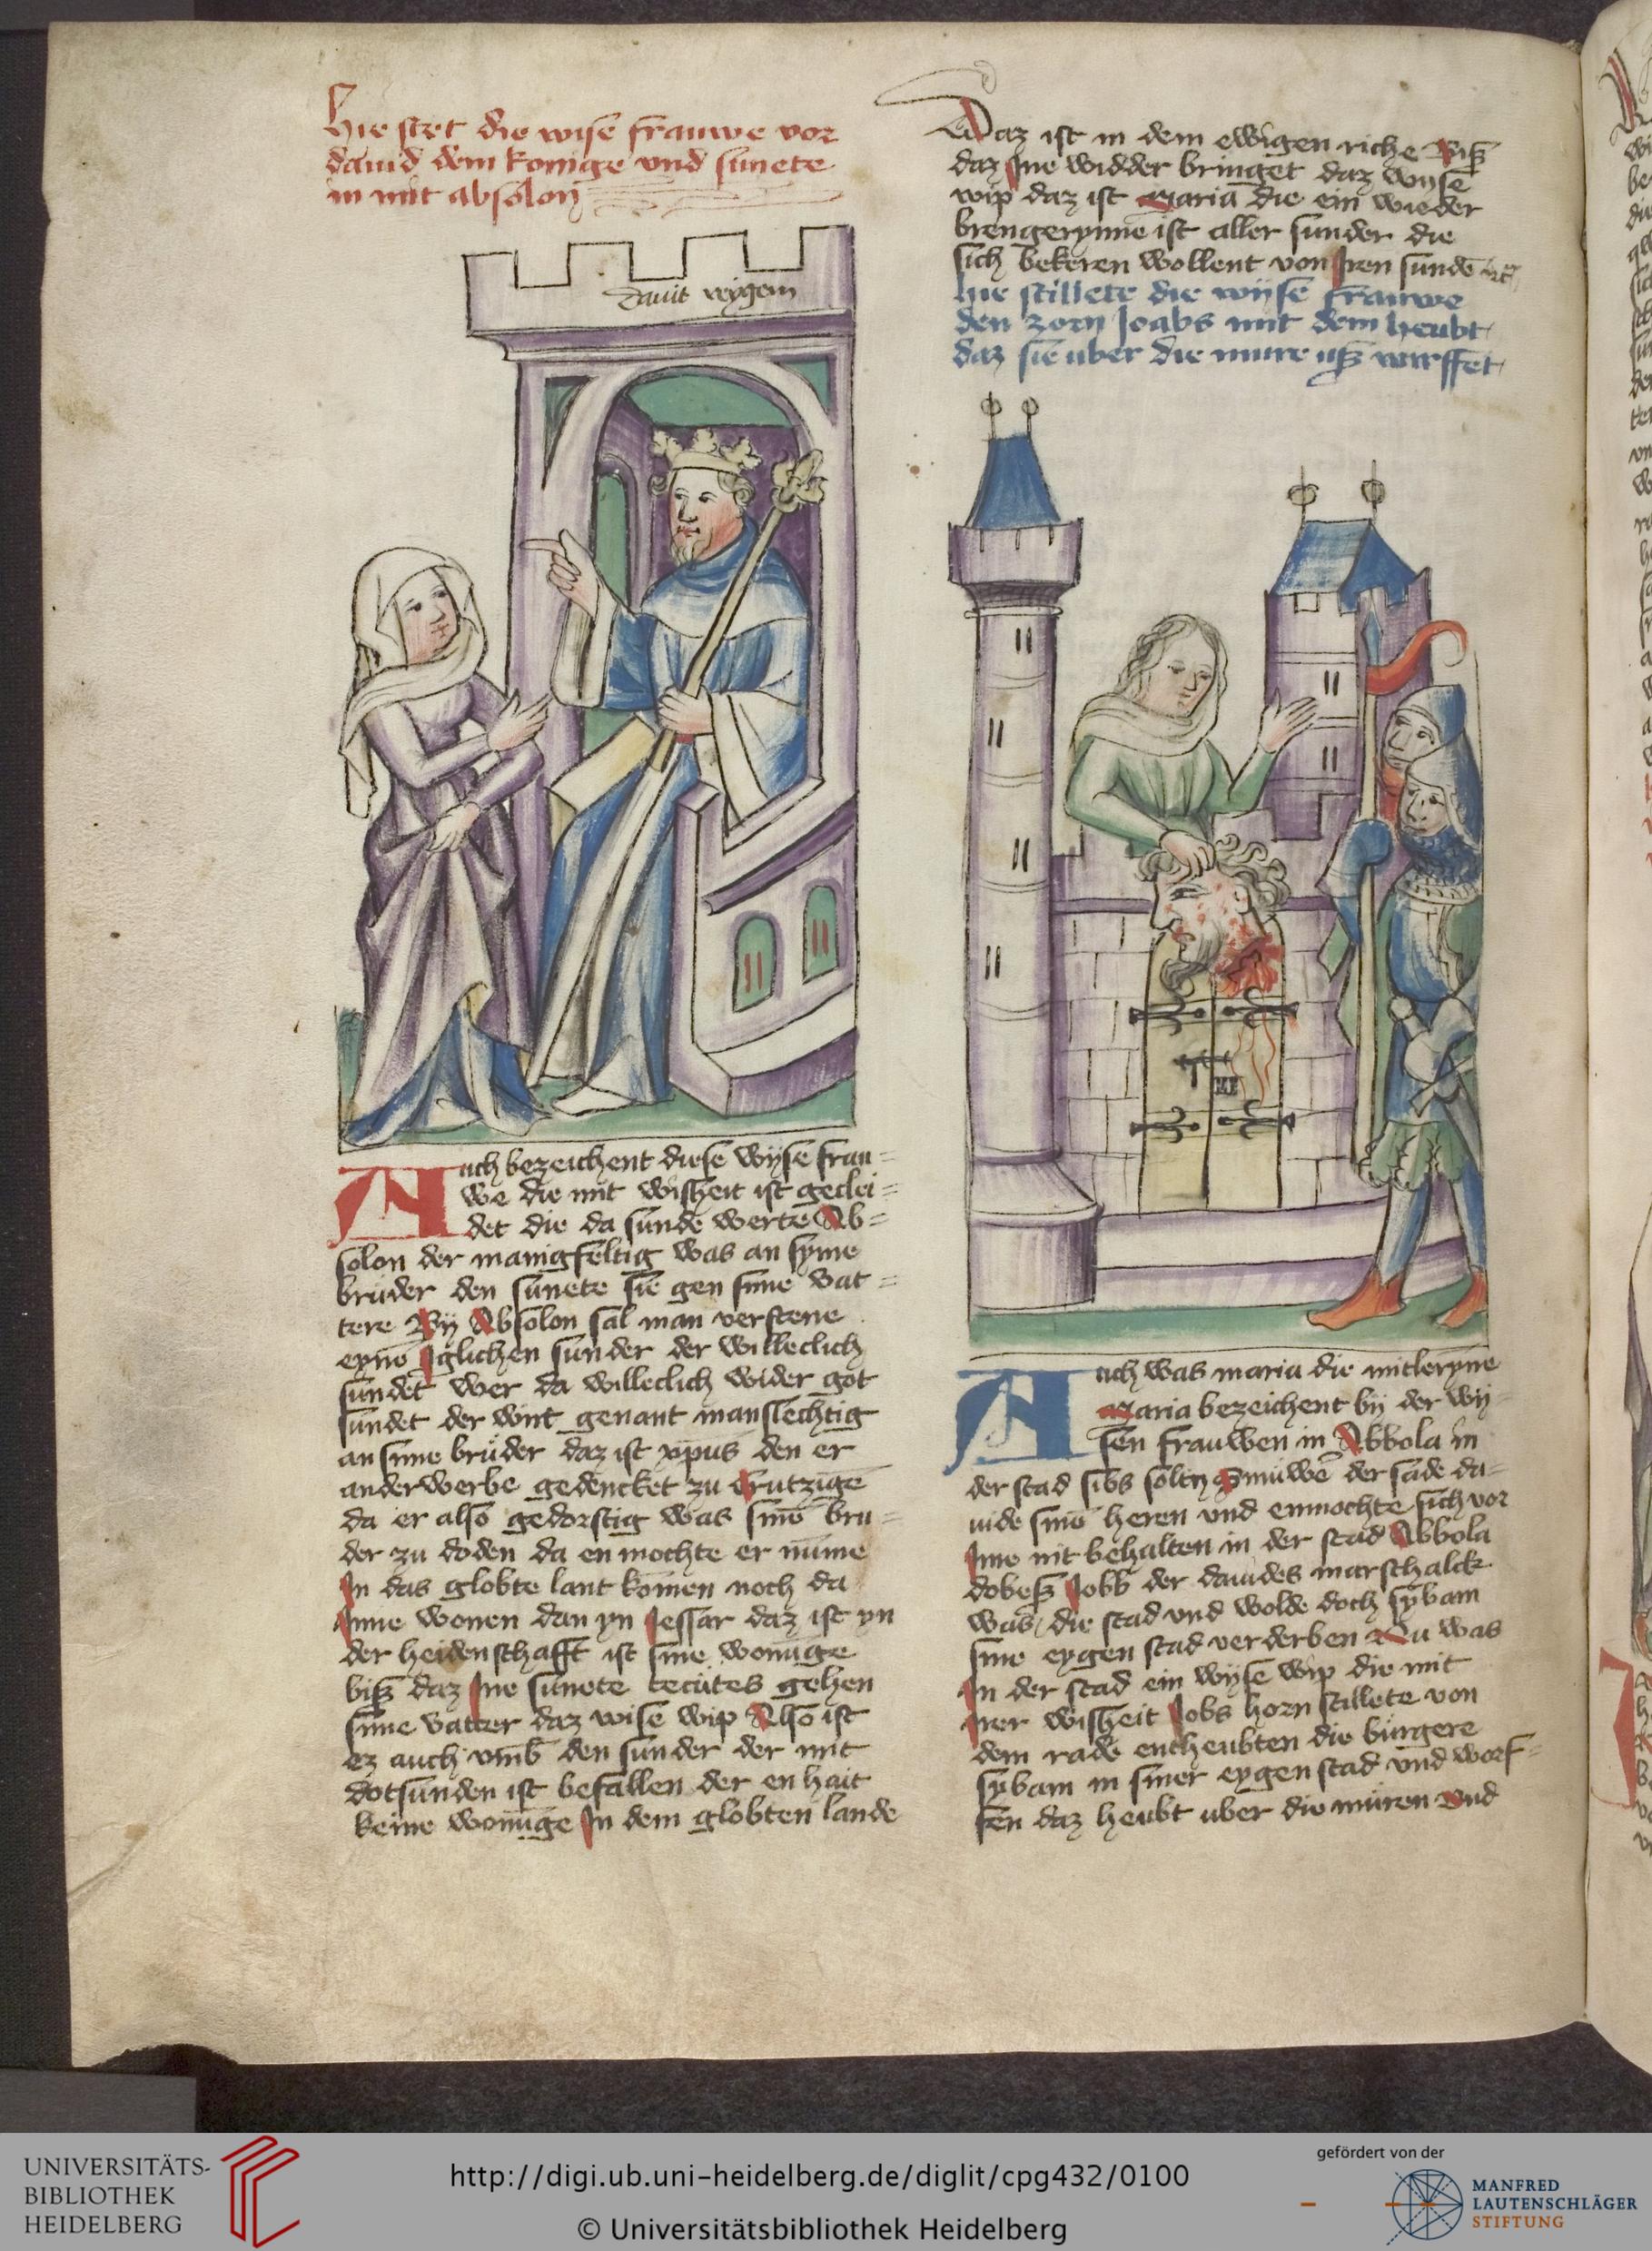 Hie stet die wise frauwe vor
dauid dem konige vnd sunete
in mit absolon
dauit regem
Auch bezeichent diese wyse frau=
we die mit wisheit ist geclei=
det die da sunde werte Ab=
solon der manigfeltig was an syme
bruder den sunete sie gen sime vat=
tere By Absolon sal man verstene
eyne Iglichen sunder der willeclich
sundet wer da willeclich wider got
sundet der wirt genant manslechtig
an sime bruder daz ist xpus den er
anderwerbe gedencket zu crutzige
da er also gedorstig was sine bru=
der zu doden da en mochte er nume
In das globte lant komen noch da
Inne wonen dan yn Jessar daz ist yn
der heidenschafft ist sine wonunge
bisz daz Ine sunete gehen
sime vatter daz wise wip Also ist
ez auch vmb den sunder der mit
dotsunden ist befallen der en hait
keine wonunge In dem globten lande
Daz ist in dem ewigen riche Bisz
daz Ine widder bringet daz wyse
wip daz ist Maria die ein wieder
brengerynne ist aller sunder die
sich bekeren wollent von Iren sunde
Hie stillete die wyse frauwe
den zorn Joabs mit dem heubt
daz sie uber die mure usz wurffet
Auch was maria die mitleryne
Maria bezeichent by der wy
sen frauwen in Abbola in
der stad sibs soltn der sade da=
uide sine heren und enmochte sich vor
Ime nit behalten in der stad Abbola
dobesz Jobb der dauides marschalck
was die stad vnd wolde doch sybam
sine eygen stad verderben Nu was
In der stad ein wyse wip die mit
Irer wisheit Jobs horn stillete von
dem rade entheubten die burgere
sybam in siner eygen stad vnd worf=
fen daz heubt uber die muren vnd
UNIVERSITÄTS-
BIBLIOTHEK
HEIDELBERG
http://digi.ub.uni-heidelberg.de/diglit/cpg432/0100
© Universitätsbibliothek Heidelberg
gefördert von der
MANFRED
LAUTENSCHLÄGER
STIFTUNG